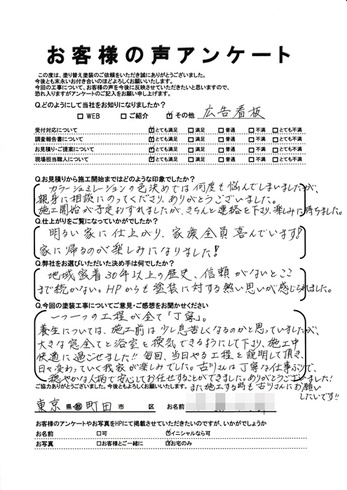 お客様の声アンケート
この度は、塗り替え塗装のご依頼をいただき誠にありがとうございました。
今後とも末永いお付き合いのほどよろしくお願いいたします。
今回の工事について、お客様の声を今後に反映させていただきたいと思いますので、
恐れ入りますがアンケートのご記入をお願い申し上げます。
Q.どのようにして当社をお知りになりましたか?
□ WEB □ ご紹介 ☑ その他 広告看板
受付対応について ☑ とても満足 □ 満足 □ 普通 □ 不満 □ とても不満
調査報告書について ☑ とても満足 □ 満足 □ 普通 □ 不満 □ とても不満
お見積り・ご提案について ☑ とても満足 □ 満足 □ 普通 □ 不満 □ とても不満
現場担当職人について ☑ とても満足 □ 満足 □ 普通 □ 不満 □ とても不満
Q.お見積りから施工開始まではどのような印象でしたか?
カラーシュミレーションの色決めでは何度も悩んでしまいましたが、
親身に相談にのってくださり、ありがとうございました。
施工開始が予定おすれましたが、きちんと連絡を下さり、楽しみに待ちました。
Q.仕上がりをご覧になっていかがでしたか?
明るい家に仕上がり、家族全員喜んでいます!
家に帰るのが楽しみになりました!
Q.弊社をお選びいただいた決め手は何でしたか?
地域密着30年以上の歴史、信頼がないとここ
まで続かない。HPからも塗装に対する熱い思いが感じられました。
Q.今回の塗装工事についてご意見・ご感想をお聞かせください
一つ一つの工程が全て「丁寧」。
養生については、施工前は少し息苦しくなるのかと思っていましたが、
大きな窓全てと浴室を換気できるようにして下さり、施工中
快適に過ごせました!!毎回、当日やる工程を説明して頂き、
日々変わっていく我家が楽しみでした。古川さんは丁寧な仕事ぶりで、
穏やかな人柄で安心してお任せすることができました。ありがとうございました!
ご協力ありがとうございました。今後ともよろしくお願いいたします。
また施工する時も古川さんにお願い
したいです!!
東京 県 町田 市 区 お名前
お客様のアンケートやお写真をHPにて掲載させていただきたいのですが、いかがでしょうか
お名前 □ 可 ☑ イニシャルなら可
お写真 □ お客様とご一緒に ☑ お宅のみ